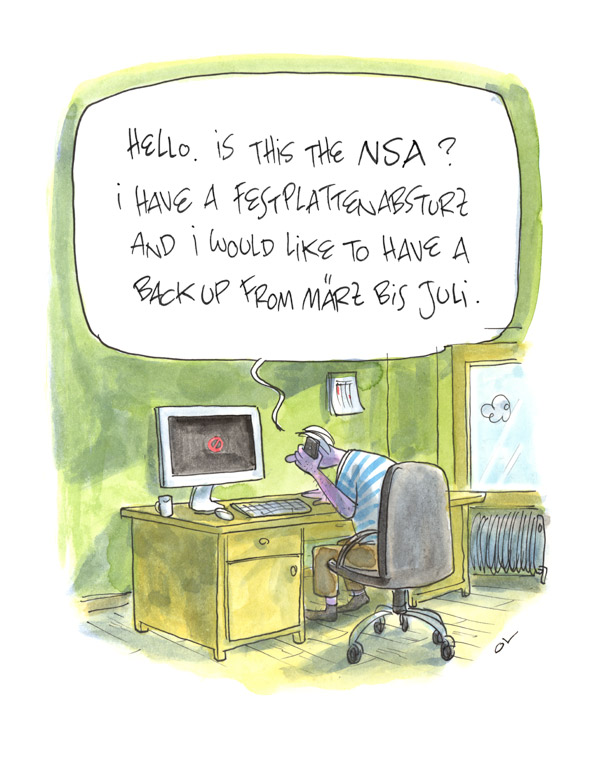 HELLO. iS THiS THE NSA?
i HAVE A FESTPLATTENABSTURZ
AND i WOULD LiKE TO HAVE A
BACKUP FROM MÄRZ BiS JULi.
OL